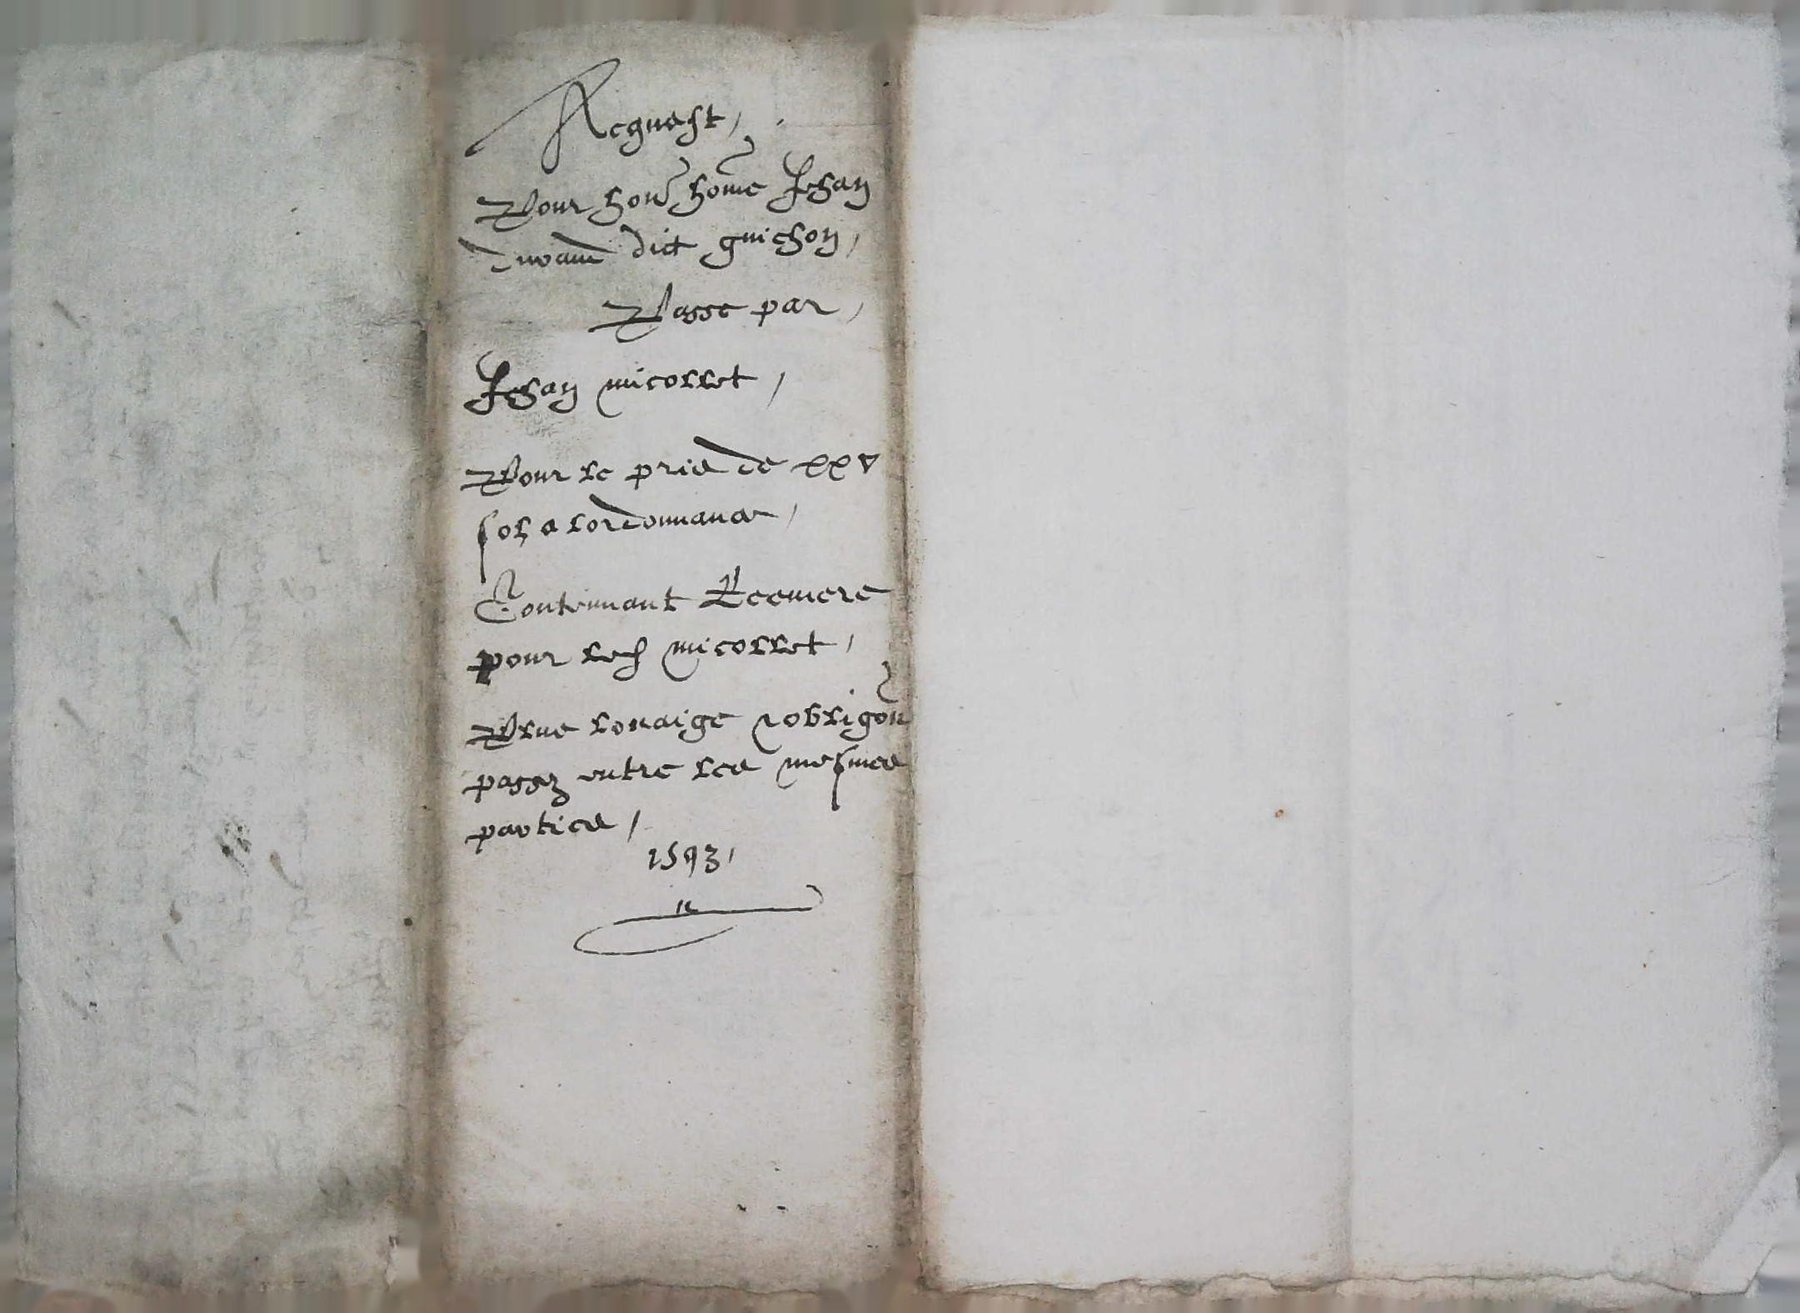 Acquest,
Pour hon home Jehan
dict guichon,
Passe par,
Jehan nicollet,
Pour le pris de xxv
solz a lordonnance,
Contennant Reemere
pour led nicollet,
Plus louaige obligon
passez entre les mesmes
parties,
1593,